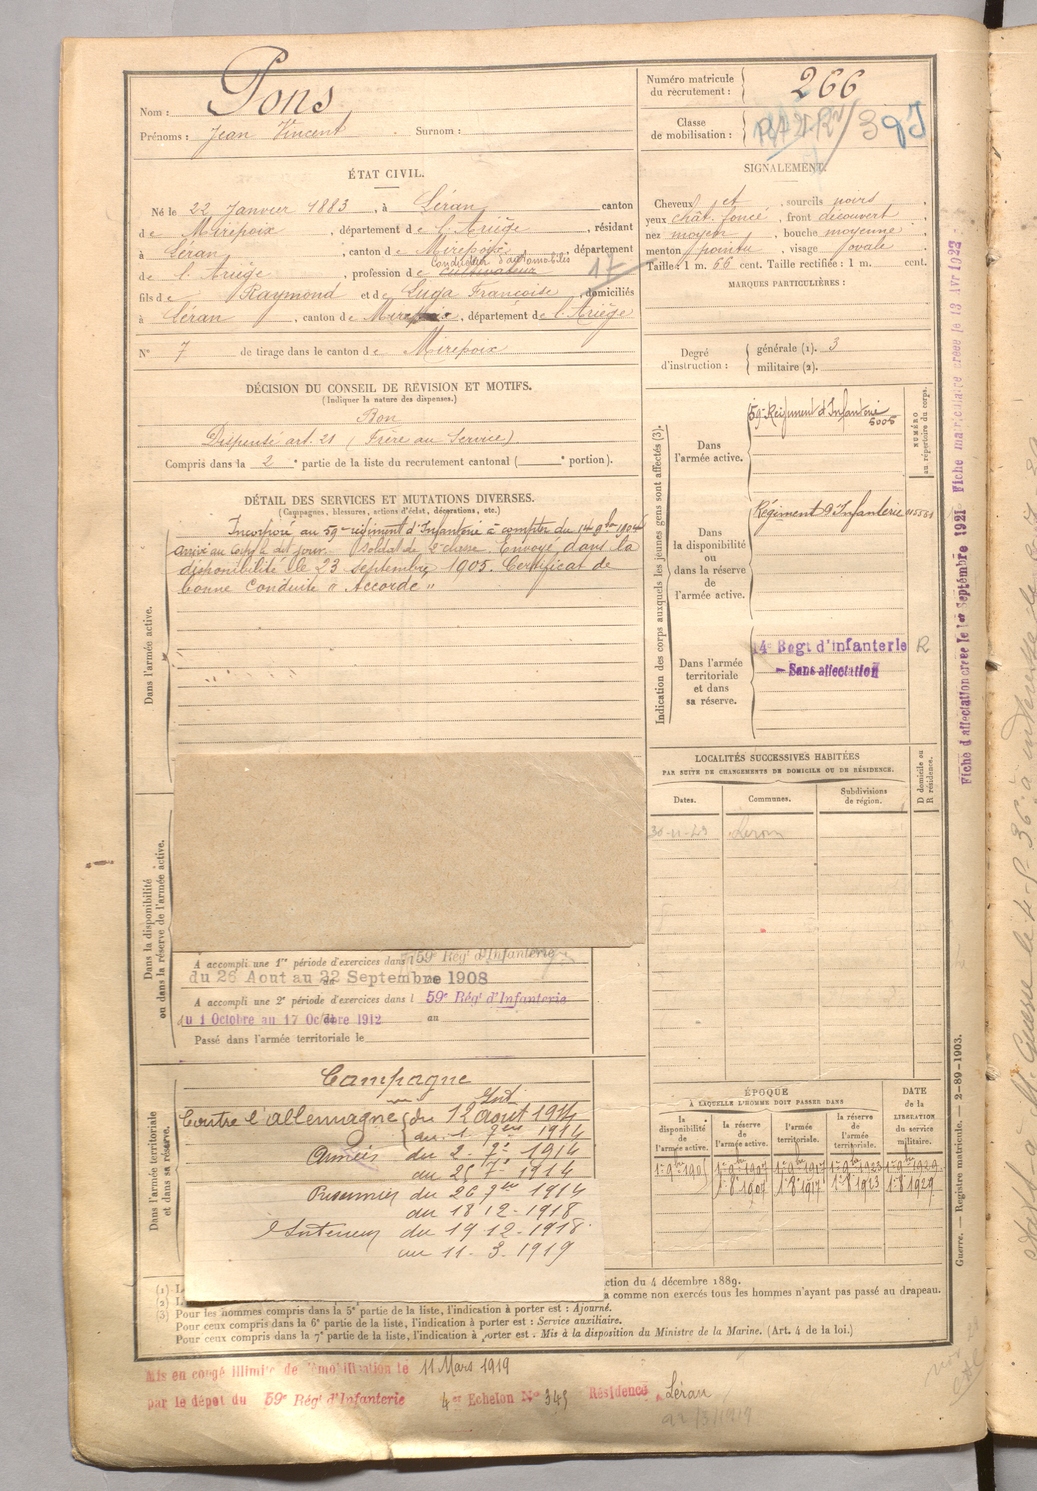 Nom : Pons
Prénoms : Jean Vincent Surnom :
Numéro matricule du recrutement : 266
Classe de mobilisation :
ÉTAT CIVIL.
Né le 22 Janvier 1883, à Léran canton
de Mirepoix, département de l'Ariège, résidant
à Léran, canton de Mirepoix, département
de l'Ariège, profession de cultivateur Conducteur d'automobiles
17
fils de Raymond et de Luga Françoise, domiciliés
à Léran, canton de Mirepoix, département de l'Ariège
N° 7 de tirage dans le canton de Mirepoix
SIGNALEMENT.
Cheveux et, sourcils noirs
yeux chât. foncé, front découvert
nez moyen, bouche moyenne
menton pointu, visage ovale
Taille : 1 m. 66 cent. Taille rectifiée : 1 m. cent.
MARQUES PARTICULIÈRES :
Degré d'instruction : générale (1). 3
militaire (2).
DÉCISION DU CONSEIL DE RÉVISION ET MOTIFS.
(Indiquer la nature des dispenses.)
Bon
Dispensé art. 21 (Frère au Service)
Compris dans la 2e partie de la liste du recrutement cantonal ( e portion).
DÉTAIL DES SERVICES ET MUTATIONS DIVERSES.
(Campagnes, blessures, actions d'éclat, décorations, etc.)
Dans l'armée active.
Incorporé au 59e régiment d'Infanterie à compter du 14 9bre 1904
arrivé au Corps le dit jour. Soldat de 2e classe. Envoyé dans la
disponibilité le 23 septembre 1905. Certificat de
bonne Conduite "Accordé"
Dans la disponibilité ou dans la réserve de l'armée active.
A accompli une 1re période d'exercices dans 59e Rég' d'Infanterie
du 26 Aout au 22 Septembre 1908
A accompli une 2e période d'exercices dans l 59e Rég' d'Infanterie
du 1 Octobre au 17 Octobre 1912 au
Passé dans l'armée territoriale le
Dans l'armée territoriale et dans sa réserve.
Campagne
Contre l'allemagne du 12 Aout 1914
au 1. 7bre 1914
Armées du 2. 7e 1914
au 25 7e 1914
Prisonnier du 26 7bre 1914
au 18 12-1918
Intérieur du 19 12-1918
au 11-3-1919
Indication des corps auxquels les jeunes gens sont affectés (3).
NUMÉRO au répertoire du corps.
Dans l'armée active.
59e Régiment d'Infanterie
5006
Dans la disponibilité ou dans la réserve de l'armée active.
Régiment d'Infanterie
Dans l'armée territoriale et dans sa réserve.
14e Regt d'Infanterie R
Sans affectation
LOCALITÉS SUCCESSIVES HABITÉES
PAR SUITE DE CHANGEMENTS DE DOMICILE OU DE RÉSIDENCE.
Dates. Communes. Subdivisions de région. D domicile ou R résidence.
30-11-23 Leran
ÉPOQUE
À LAQUELLE L'HOMME DOIT PASSER DANS
la disponibilité de l'armée active. la réserve de l'armée active. l'armée territoriale. la réserve de l'armée territoriale.
DATE de la LIBÉRATION du service militaire.
1r 9bre 1907 1r 9bre 1917 1r 9bre 1923 1r 9bre 1929
1r 8 1907 1 8 1917 1 8 1923 1 8 1929
ction du 4 décembre 1889.
a comme non exercés tous les hommes n'ayant pas passé au drapeau.
(3) Pour les hommes compris dans la 5e partie de la liste, l'indication à porter est : Ajourné.
Pour ceux compris dans la 6e partie de la liste, l'indication à porter est : Service auxiliaire.
Pour ceux compris dans la 7e partie de la liste, l'indication à porter est : Mis à la disposition du Ministre de la Marine. (Art. 4 de la loi.)
Mis en congé illimité de démobilisation le 11 Mars 1919
par le dépot du 59e Rég' d'Infanterie 4e Echelon N° 345 Résidence Léran
Fiche d'affectation créée le 1er Septembre 1921- Fiche matriculaire créée le 13 Avr 1922
Guerre. — Registre matricule. — 2-89-1903.